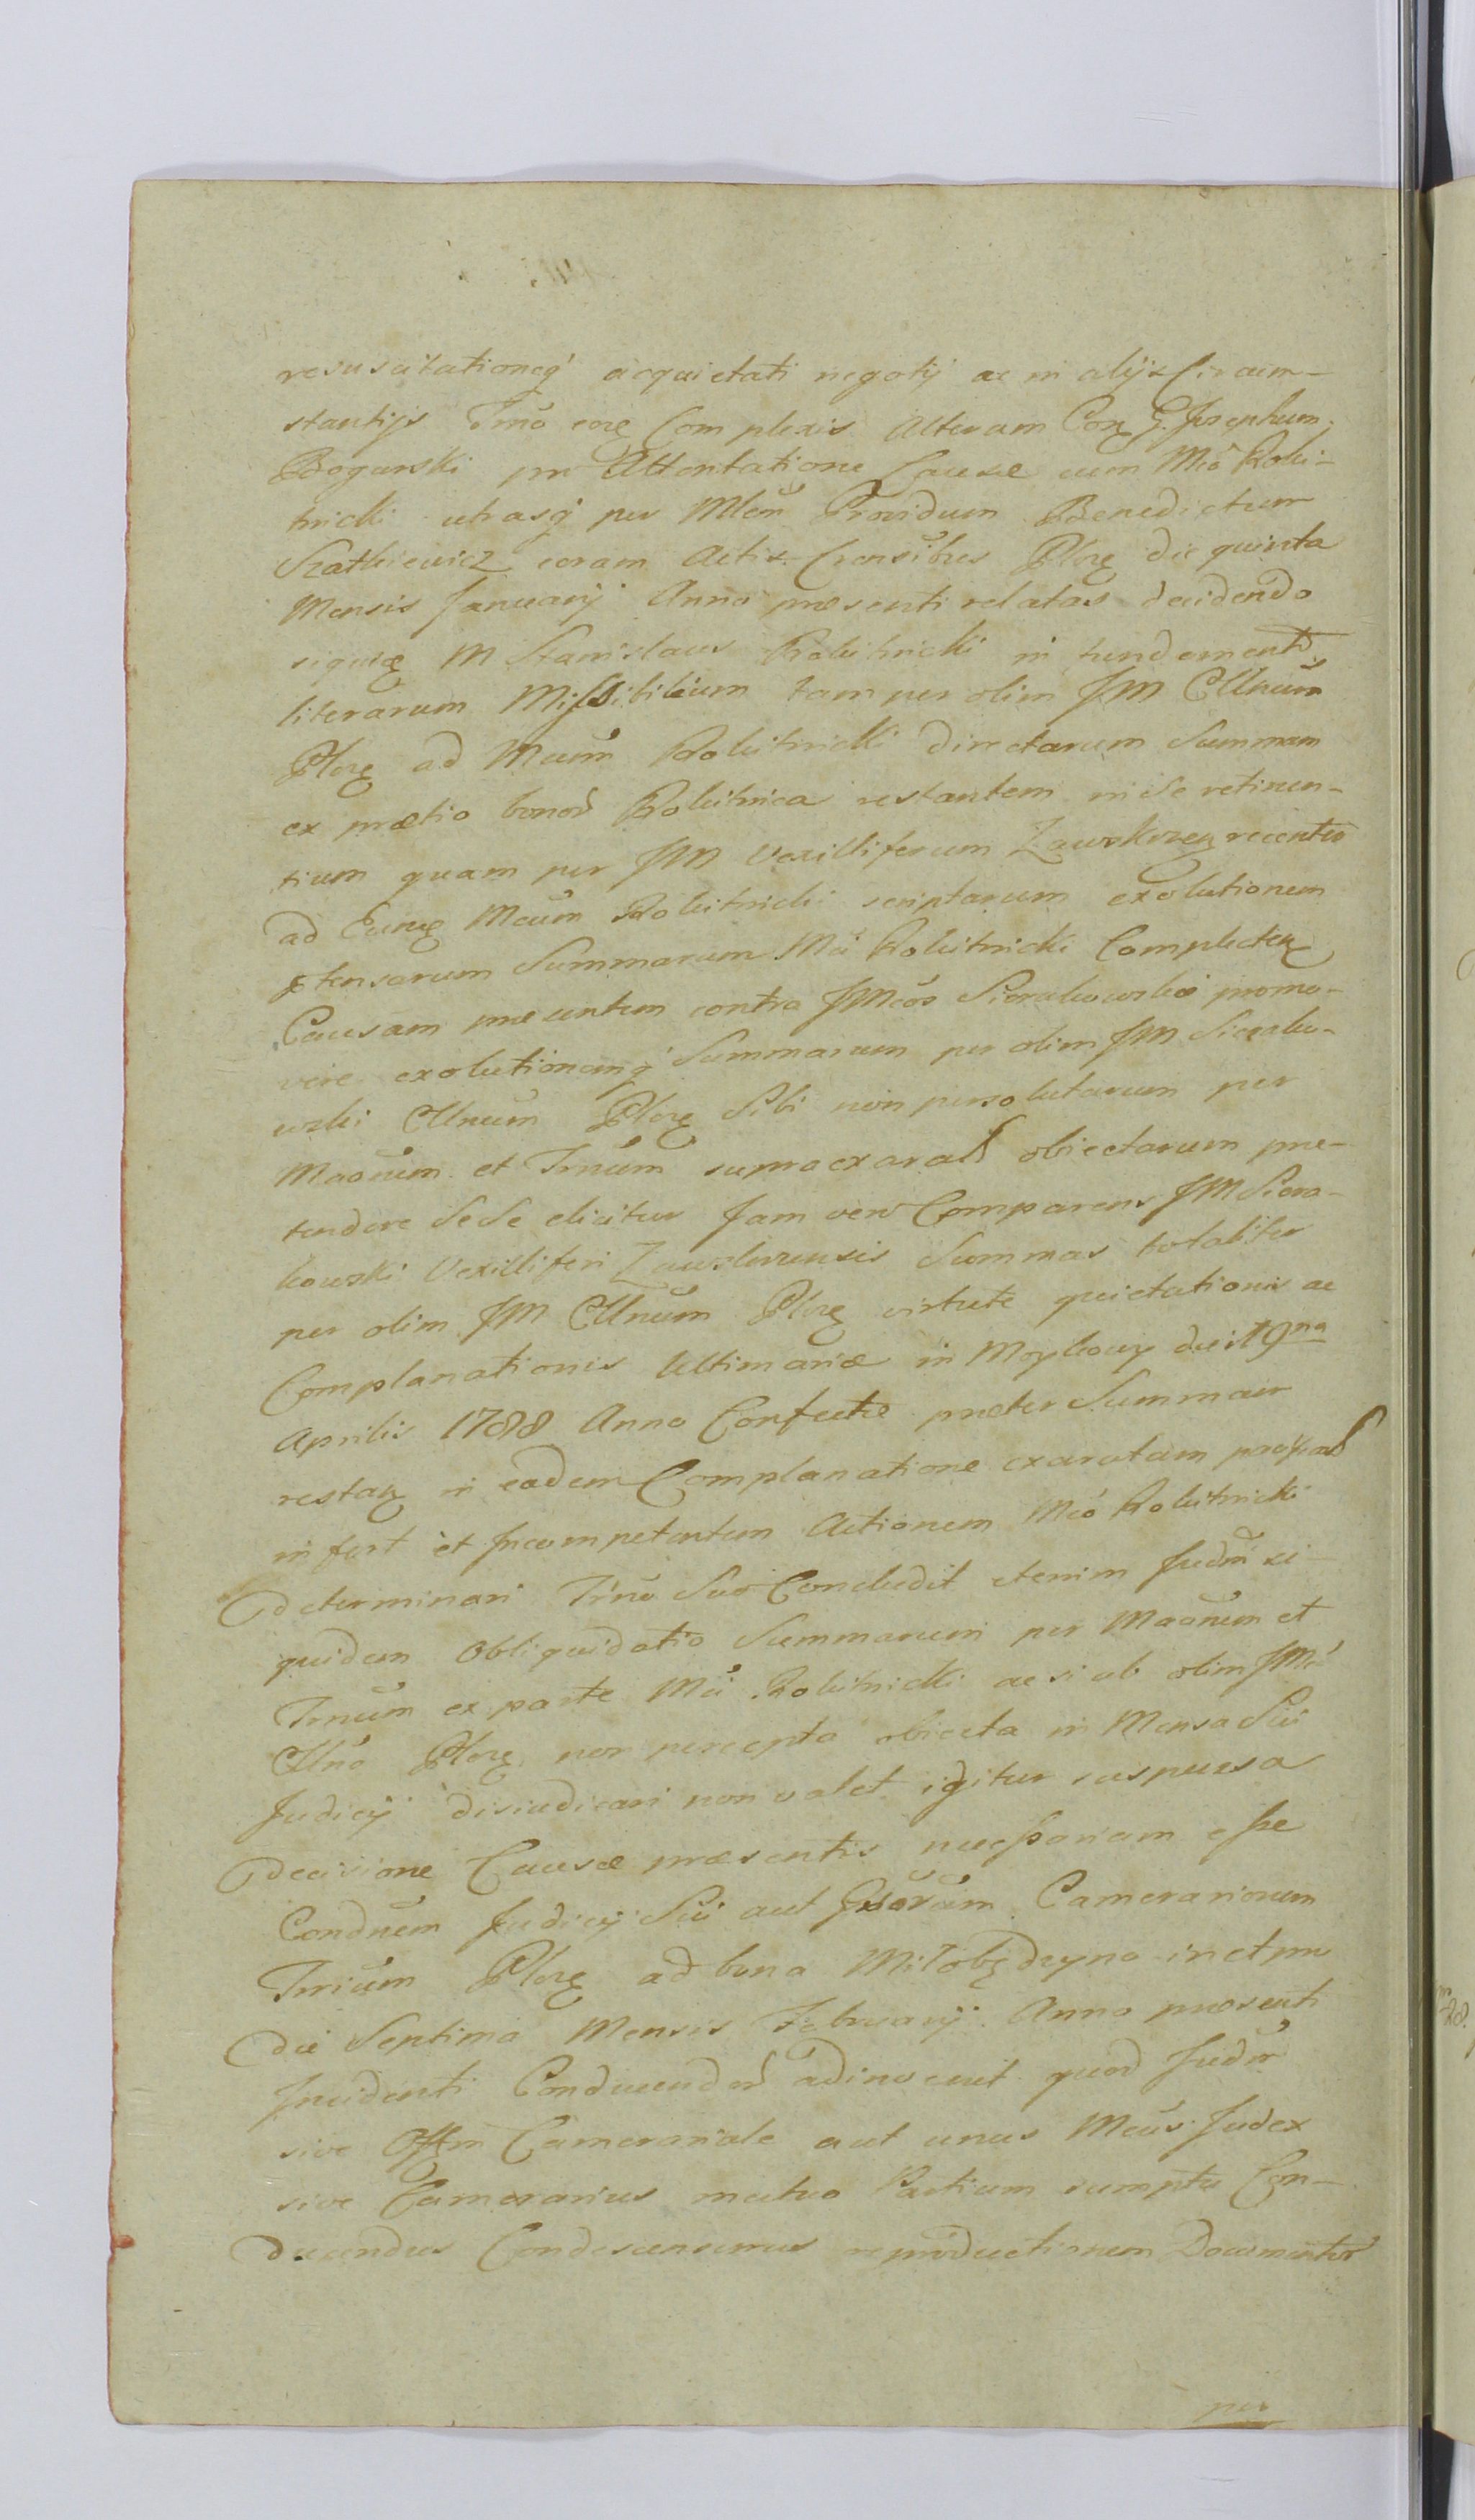 resuscitationeq́ acquietati negotij ac in alijs Circum-
stantijs Trno eorę Complexis Alteram Con G. Josephum
Bogurski pro Attentatione Causæ cum Mco Rokit-
nicki utrasq́ per Mlem Providum Benedictum
Szatkiewicz coram Actis Crensibus Plorę die quinta
Mensis Januarij Anno præsenti relatas decidendo
siquię M Stanislaus Rokitnicki in fundamento
literarum Missibilium tam per olim JM CUnum
Plorę ad Mcum Rokitnicki directarum Summam
ex prætio bonor Rokitnica restantem in se retinen-
tium quam per JM Vexilliferum Zawskrzen recenter
ad Eunę Mcum Rokitnicki scriptarum exolutionem
ptensarum Summarum Mci Rokitnicki Complecten
Causam præsentem contra JMcos Sierakowskie promo-
vere exolutionemq́ Summarum per olim JM Sierako-
wski CUnum Plorę Sibi non persolutarum per
Maonum et Trnum supraexarat obiectarum præ-
tendere SeSe elicitur Jam vero Comparens JM Siera-
kowski Vexilliferi Zawskrzensis Summas totaliter
per olim JM CUnum Plorę virtute quietationis ac
Complanationis Ultimariæ in Moykowy die 19na
Aprilis 1788 Anno Confectæ præter Summam
restan in eadem Complanatione exaratam
infert et Incompetentem Actionem Mco Rokitnicki
determinari Trno Suo Concludit etenim Judm si-
quidem Obliquidatio Summarum per Maonum et
Trnum ex parte Mci Rokitnicki ac si ab olim JMco
CUno Plorę non percepta obiecta in Mensa Sui
Judicij disiudicari non valet igitur suspensa
decisione Causæ præsentis necessariam esse
Condnem Judicij Sui aut Camerariorum
Trrium Plorę ad bona Milobędzyno in et pro
die Septima Mensis Februarij Anno præsenti
Incidenti Conducendor adinvenit quod Judm
sive Offm Camerariale aut unus Mcus Judex
sive Camerarius mutuo Partium sumptu Con-
ducendus Condescensurus reproductionem Documentor
per